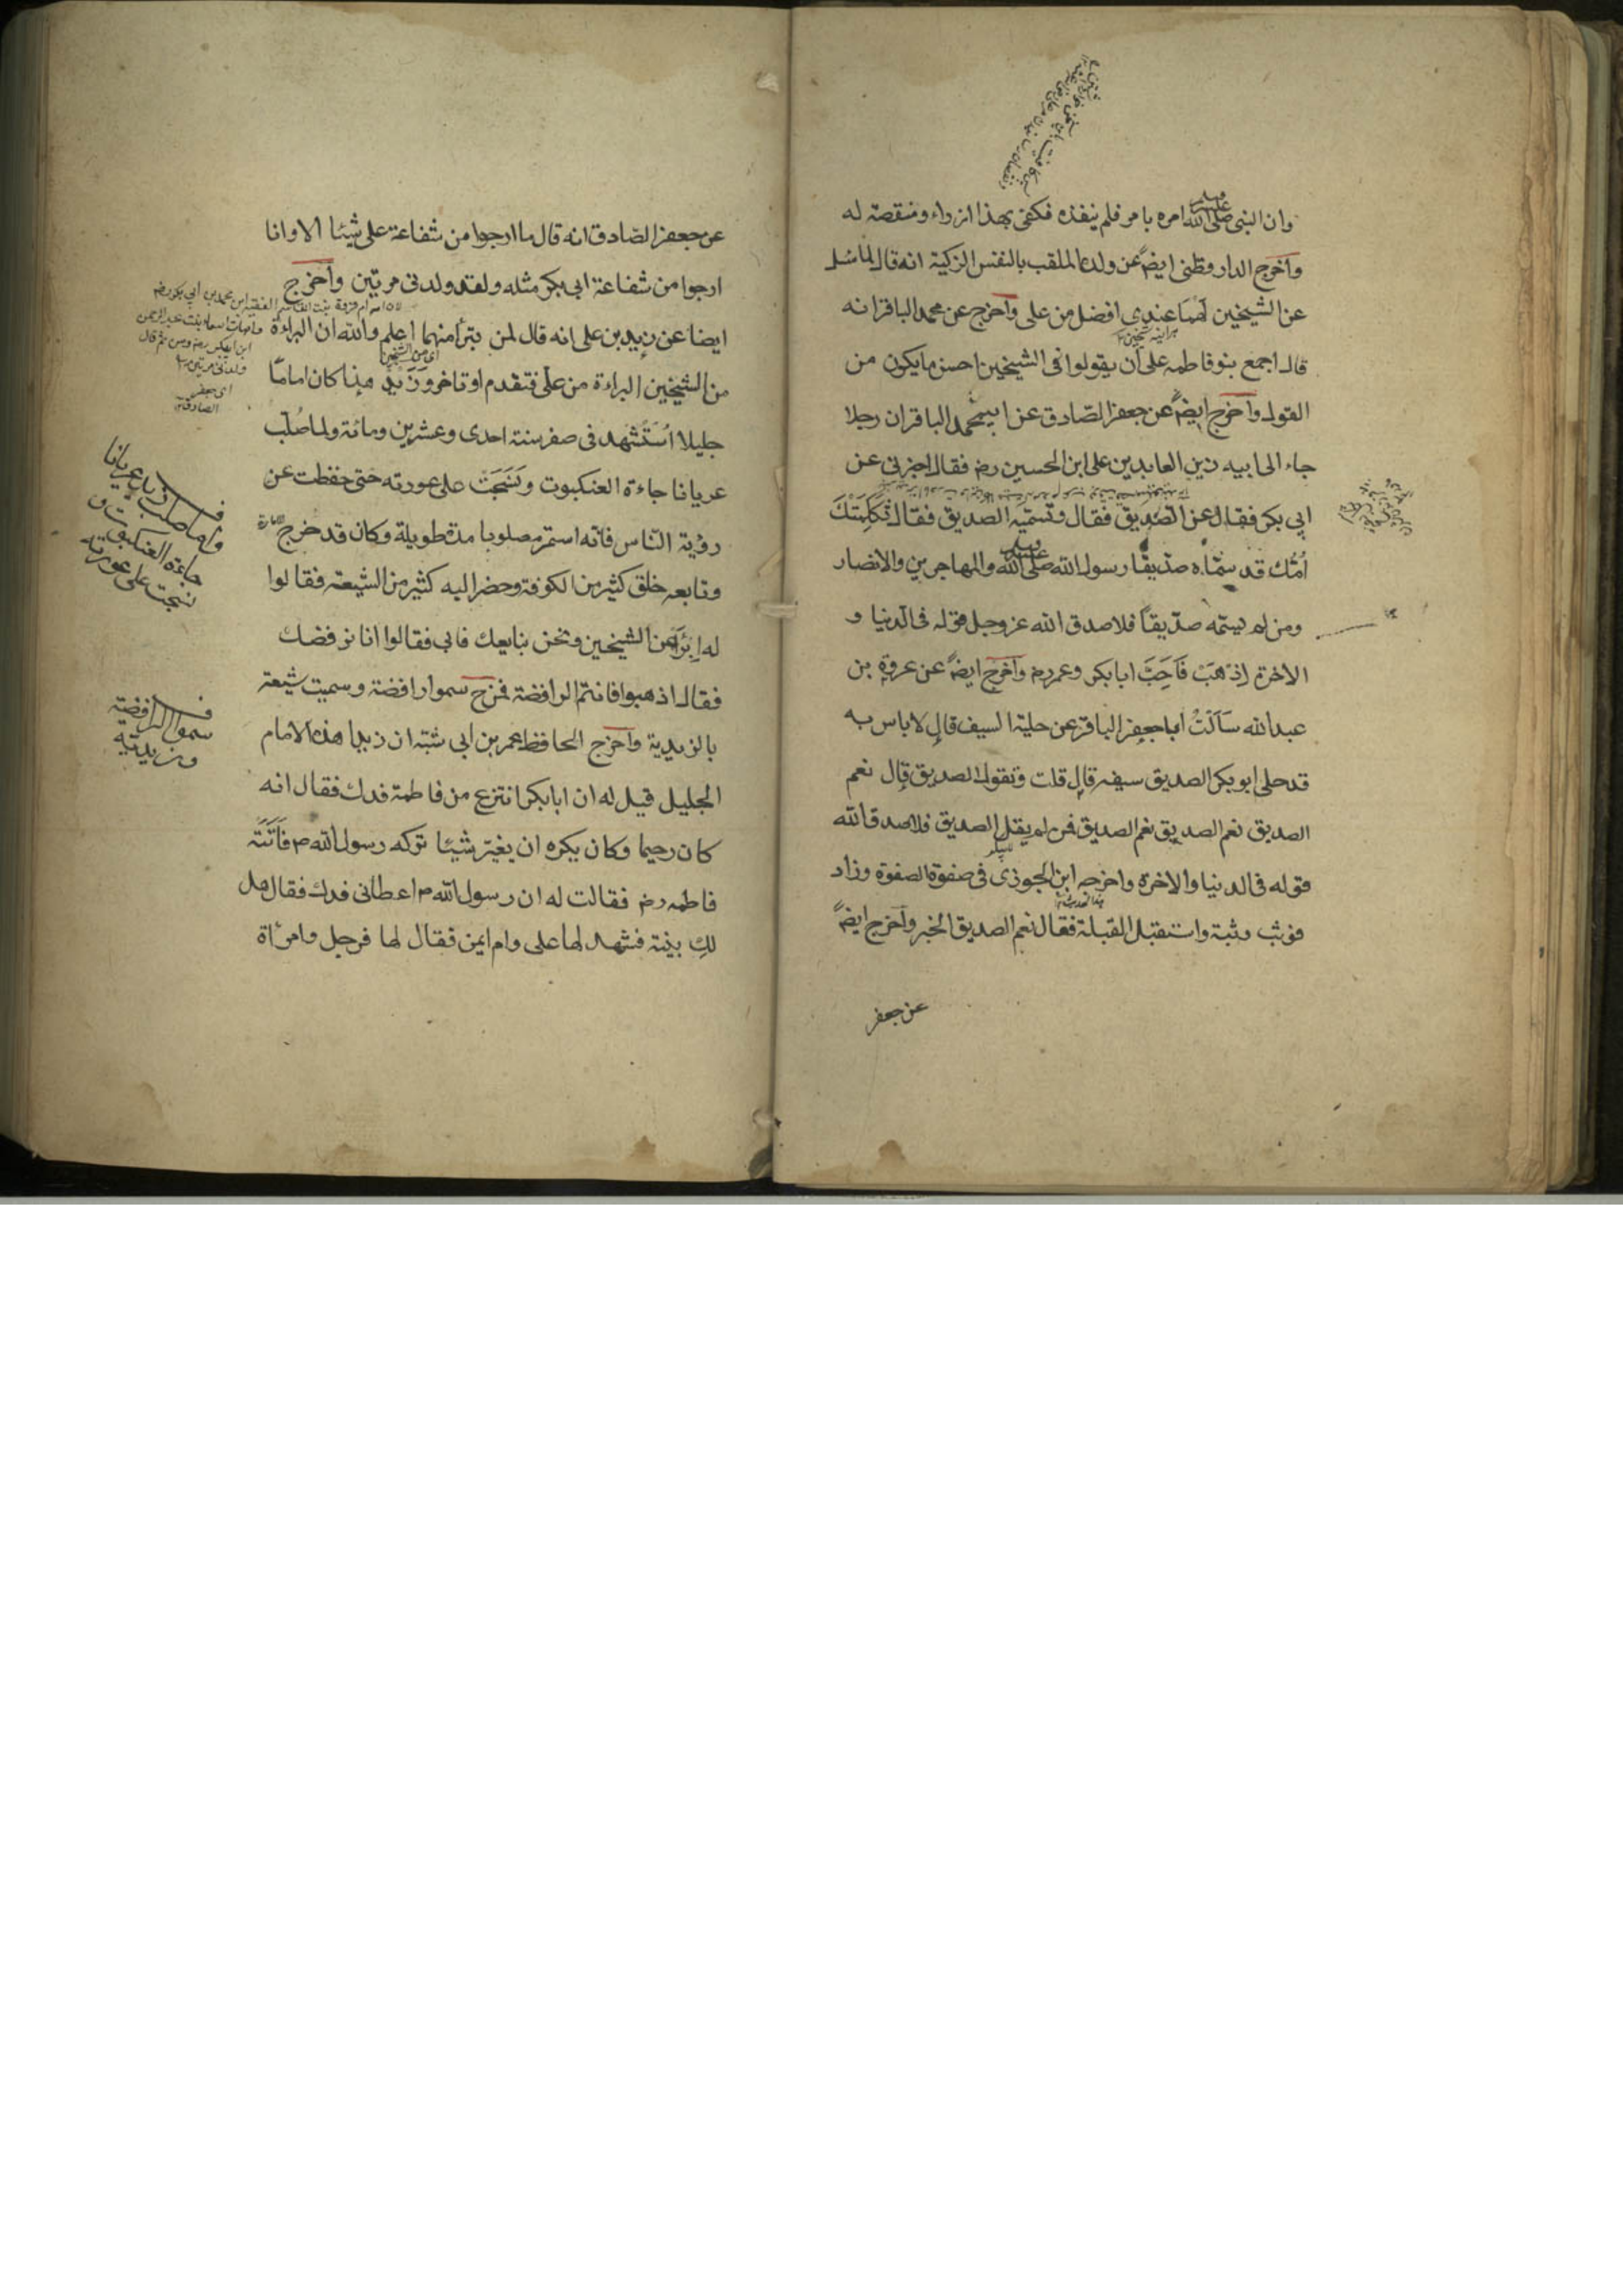 وان النبى صلى الله عليه وسلم امره بامر فلم ينفذه فكفى بهذا ازراء ومنقصة له
واخرج الدارقطنى ايضً عن ولده الملقب بالنفس الزكية انه قال لما سئل
عن الشيخين لهما عندى افضل من على واخرج عن محمد الباقر انه
قال اجمع بنو فاطمه على ان يقولوا فى الشيخين احسن ما يكون من
القول واخرج ايضً عن جعفر الصادق عن ابيه محمد الباقر ان رجلا
جاء الى ابيه زين العابدين على ابن الحسين رضـ فقال اخبرنى عن
ابى بكر فقال عن الصديق فقال وتسميه الصديق فقال ثكلتك
امك قد سماه صديقا رسول الله صلى الله عليه وسلم والمهاجرين والانصار
ومن لم يسمه صديقاً فلا صدق الله عز وجل قوله فى الدنيا و
الاخرة اذهب فاحب ابا بكر وعمر رضـ واخرج ايضً عن عروة بن
عبد الله سالت ابا جعفر الباقر عن حلية السيف قال لا باس به
قد حلى ابو بكر الصديق سيفه قال قلت وتقول الصديق قال نعم
الصديق نعم الصديق نعم الصديق فمن لم يقل الصديق فلا صدق الله
قوله فى الدنيا والاخرة واخرجه ابن الجوزى فى صفوة الصفوة وزاد
فوثب وثبة واستقبل القبلة فقال نعم الصديق الخبر واخرج ايضً
عن جعفر
عن جعفر الصادق انه قال ما ارجوا من شفاعة على شيئا الا وانا
ارجوا من شفاعة ابى بكر مثله ولقد ولدنى مرتين واخرج
ايضا عن زيد بن على انه قال لمن يتبرأ منهما اعلم والله ان البراءة
اى من الشيخين
من الشيخين البراءة من على فتقدم او تاخر وزيد هذا كان اماما
جليلا استشهد فى صفر سنة احدى وعشرين ومائة ولما صلب
عريانا جاءة العنكبوت ونسجت على عورته حتى حفظت عن
رؤية الناس فانه استمر مصلوبا مدة طويلة وكان قد خرج
وتابعه خلق كثير من الكوفة وحضر اليه كثير من الشيعة فقالوا
له ابرأ من الشيخين ونحن نبايعك فابى فقالوا انا نرفضك
فقال اذهبوا فانتم الرافضة فمن ح سموا رافضة وسميت شيعته
بالزيدية واخرج الحافظ عمر بن ابى شبه ان زيدا هذا الامام
الجليل قيل له ان ابا بكر انتزع من فاطمة فدك فقال انه
كان رحيما وكان يكره ان يغير شيئا تركه رسول الله ص فاتته
فاطمه رضـ فقالت له ان رسول الله ص اعطانى فدك فقال هل
لك بينة فشهد لها على وام ايمن فقال لها فرجل وامرأة
ولدنى مرتين
اى جعفر
الصادق
ولما صلب زيد عريانا
جاءة العنكبوت و
نسجت على عورته
سموا الرافضة
وزيدية